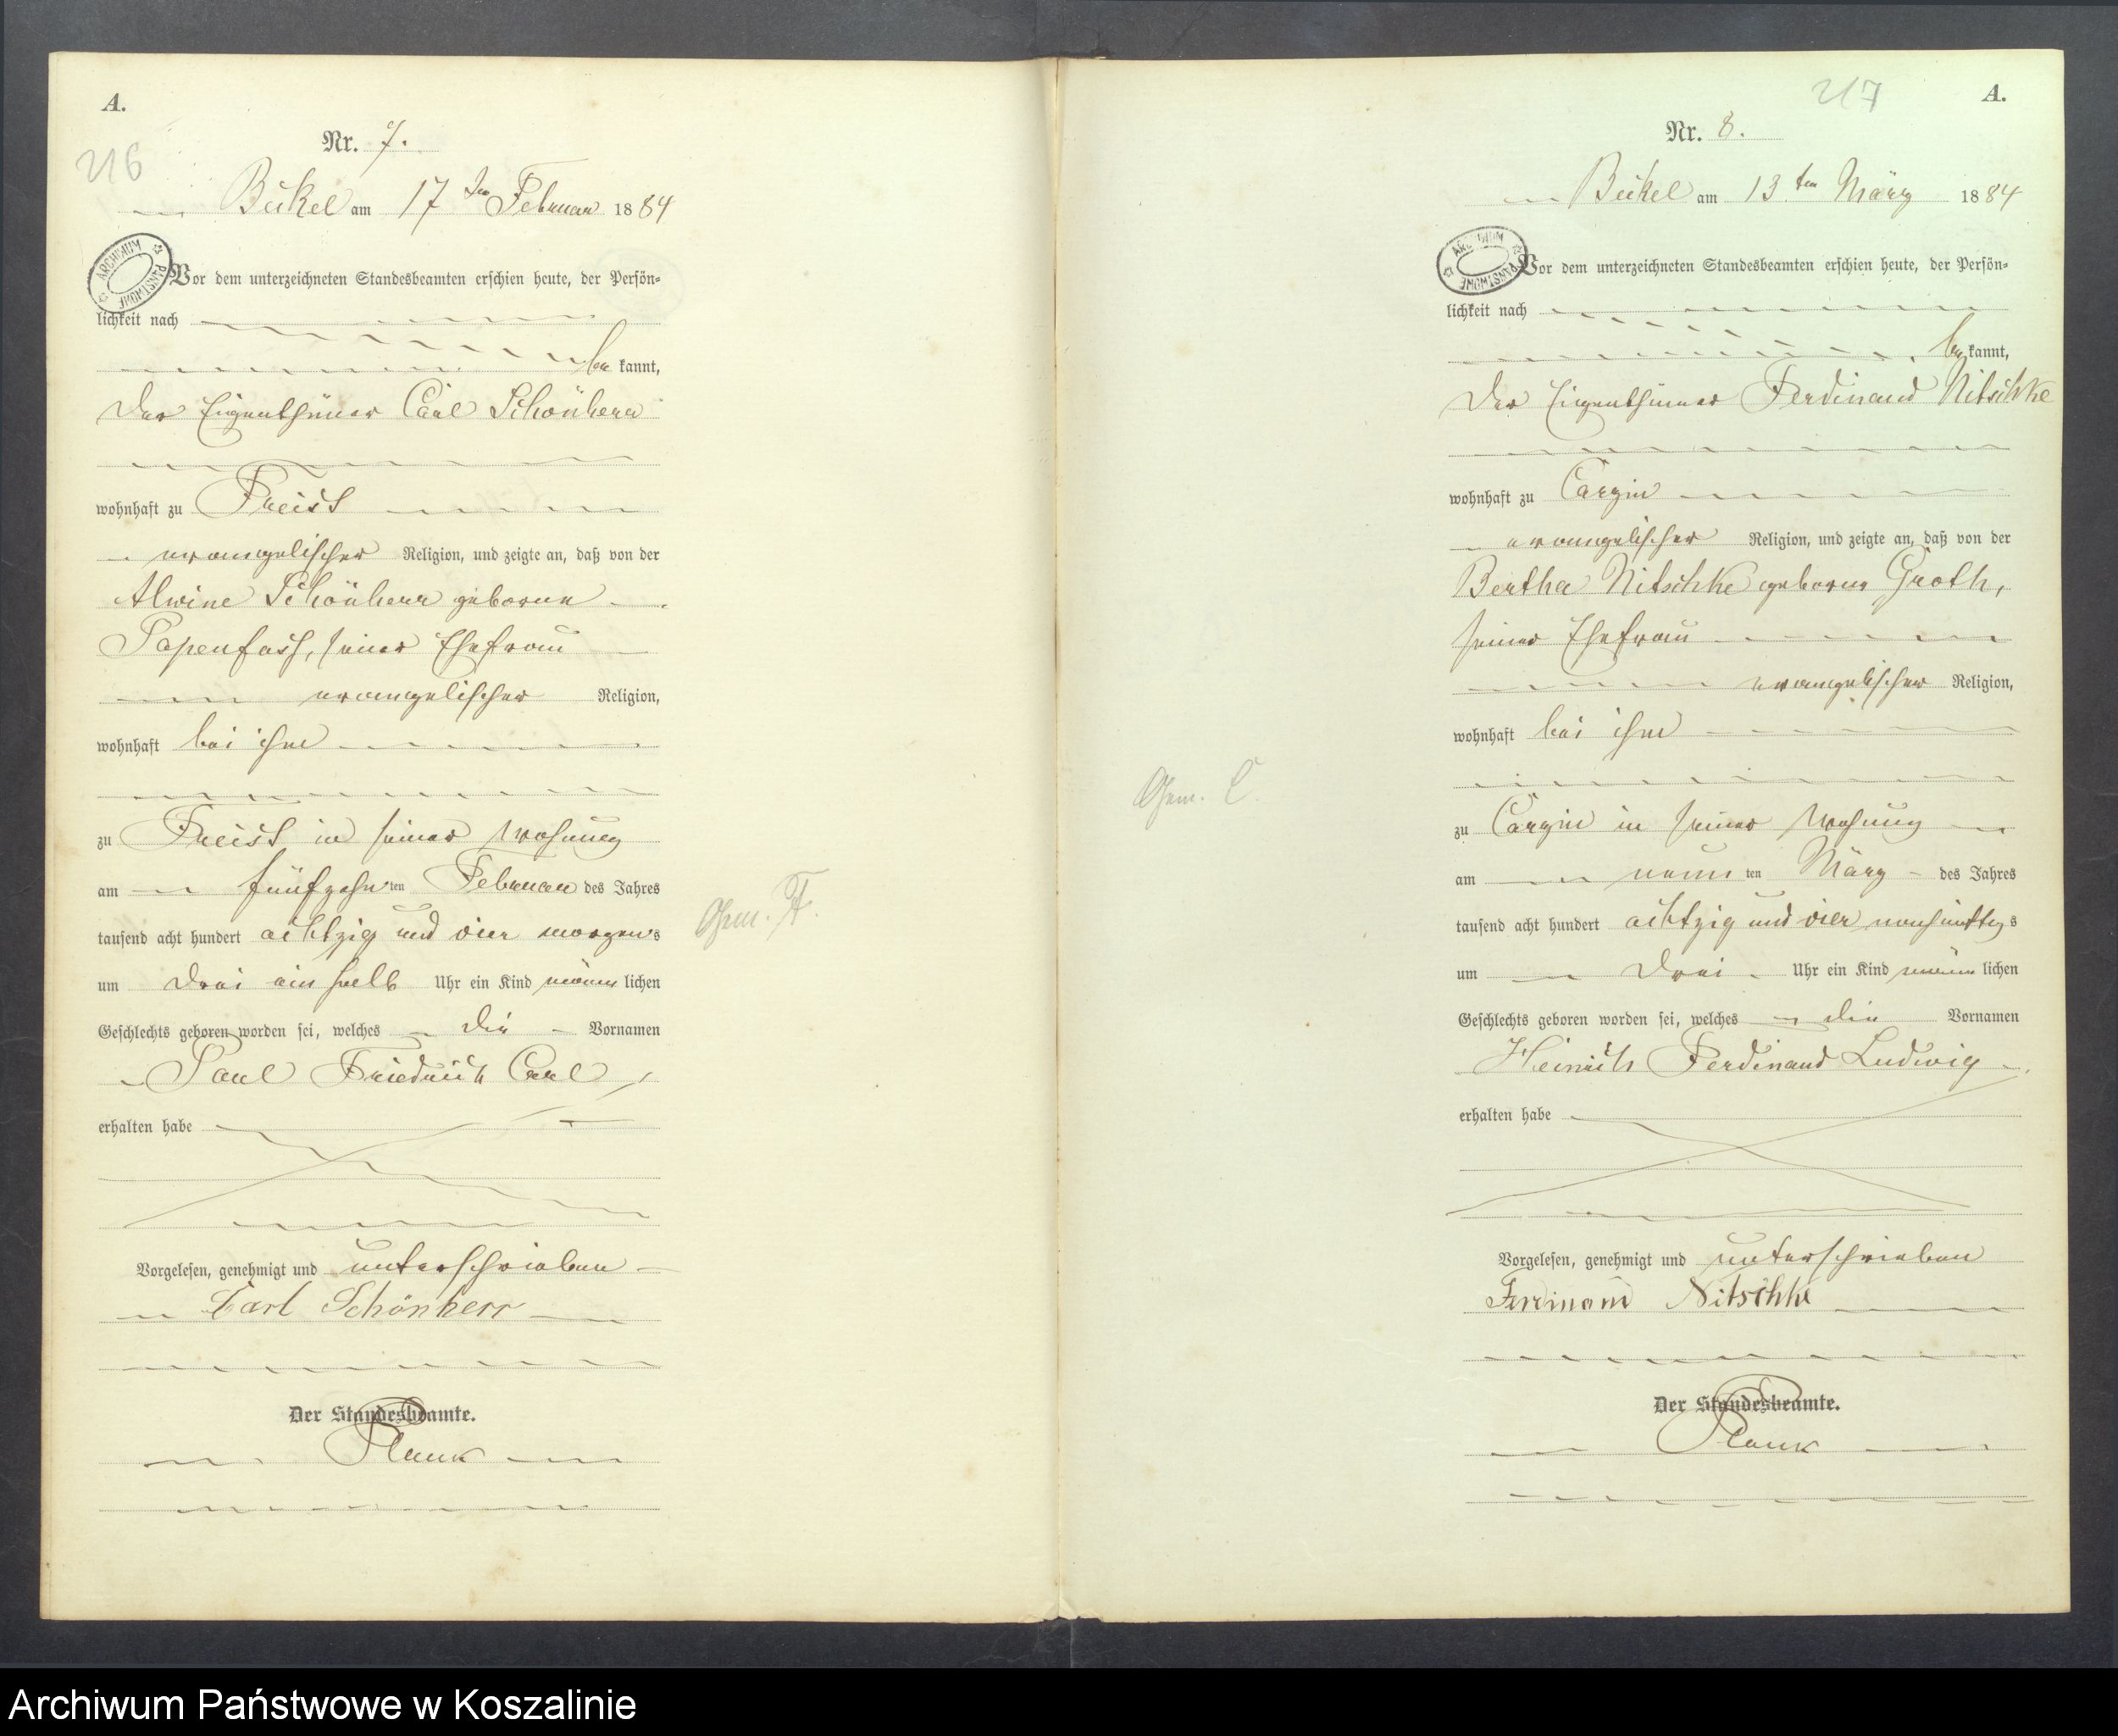 A.
216
Nr. 7.
Beckel am 17ten Februar 1884
ARCHIWUM PAŃSTWOWE
Vor dem unterzeichneten Standesbeamten erschien heute, der Persön-
lichkeit nach
be kannt,
der Eigenthümer Carl Schönherr
wohnhaft zu Freist
evangelischer Religion, und zeigte an, daß von der
Alwine Schönherr geborne
Papenfuss, seiner Ehefrau
evangelischer Religion,
wohnhaft bei ihm
zu Freist in seiner Wohnung
am fünfzehn ten Februar des Jahres
tausend acht hundert achtzig und vier morgens
um drei ein halb Uhr ein Kind männ lichen
Geschlechts geboren worden sei, welches die Vornamen
Paul Friedrich Carl
erhalten habe
Vorgelesen, genehmigt und unterschrieben
Carl Schönherr
Der Standesbeamte.
Gem. F.
217
A.
Nr. 8.
Beckel am 13ten März 1884
ARCHIWUM PAŃSTWOWE
Vor dem unterzeichneten Standesbeamten erschien heute, der Persön-
lichkeit nach
be kannt,
der Eigenthümer Ferdinand Nitschke
wohnhaft zu Carzin
evangelischer Religion, und zeigte an, daß von der
Bertha Nitschke geborne Groth,
seiner Ehefrau
evangelischer Religion,
wohnhaft bei ihm
Gem. C.
zu Carzin in seiner Wohnung
am neun ten März des Jahres
tausend acht hundert achtzig und vier nachmittags
um drei Uhr ein Kind männ lichen
Geschlechts geboren worden sei, welches die Vornamen
Heinrich Ferdinand Ludwig
erhalten habe
Vorgelesen, genehmigt und unterschrieben
Ferdinand Nitschke
Der Standesbeamte.
Archiwum Państwowe w Koszalinie